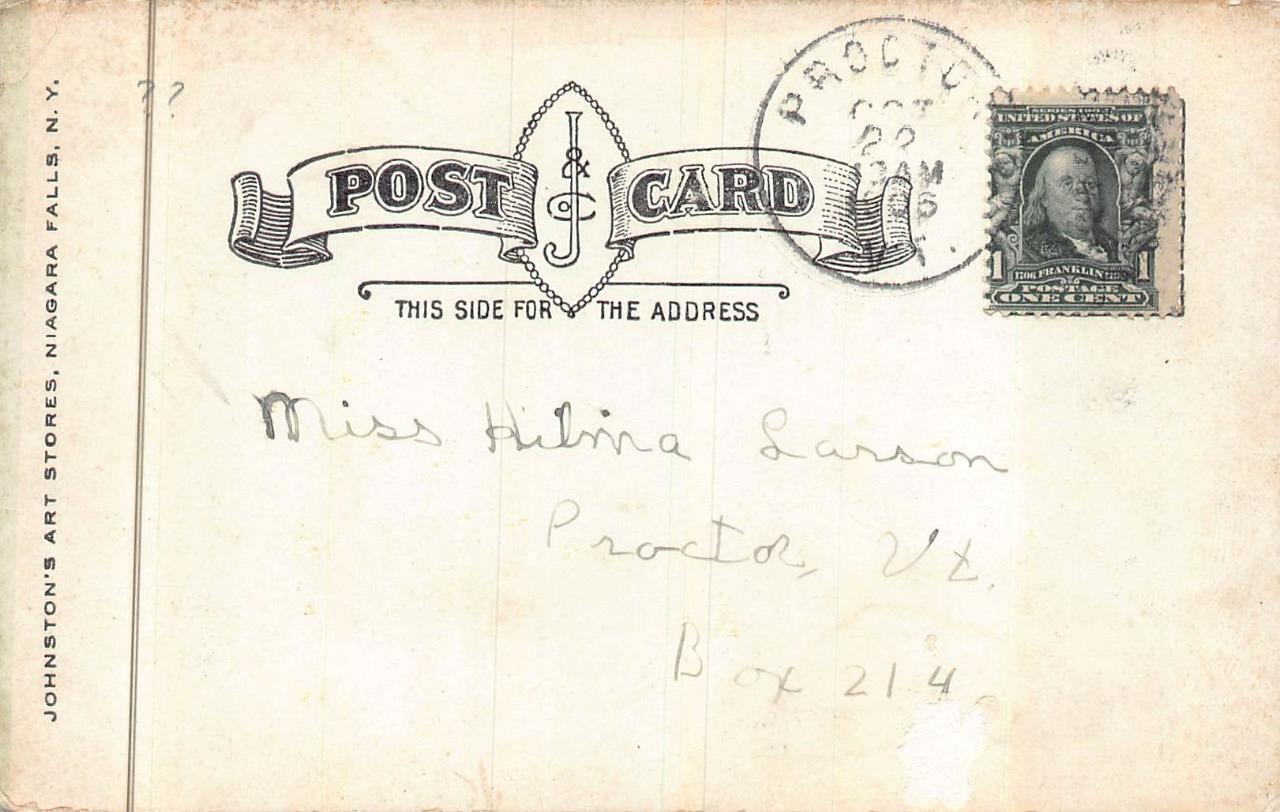 JOHNSTON'S ART STORES, NIAGARA FALLS, N. Y.
??
POST J & Co CARD
THIS SIDE FOR THE ADDRESS
PROCTOR
OCT
22
AM
SERIES 1902
UNITED STATES OF
AMERICA
1706 FRANKLIN 1790
POSTAGE
1 ONE CENT 1
Miss Hilma Larson
Proctor, Vt.
Box 214